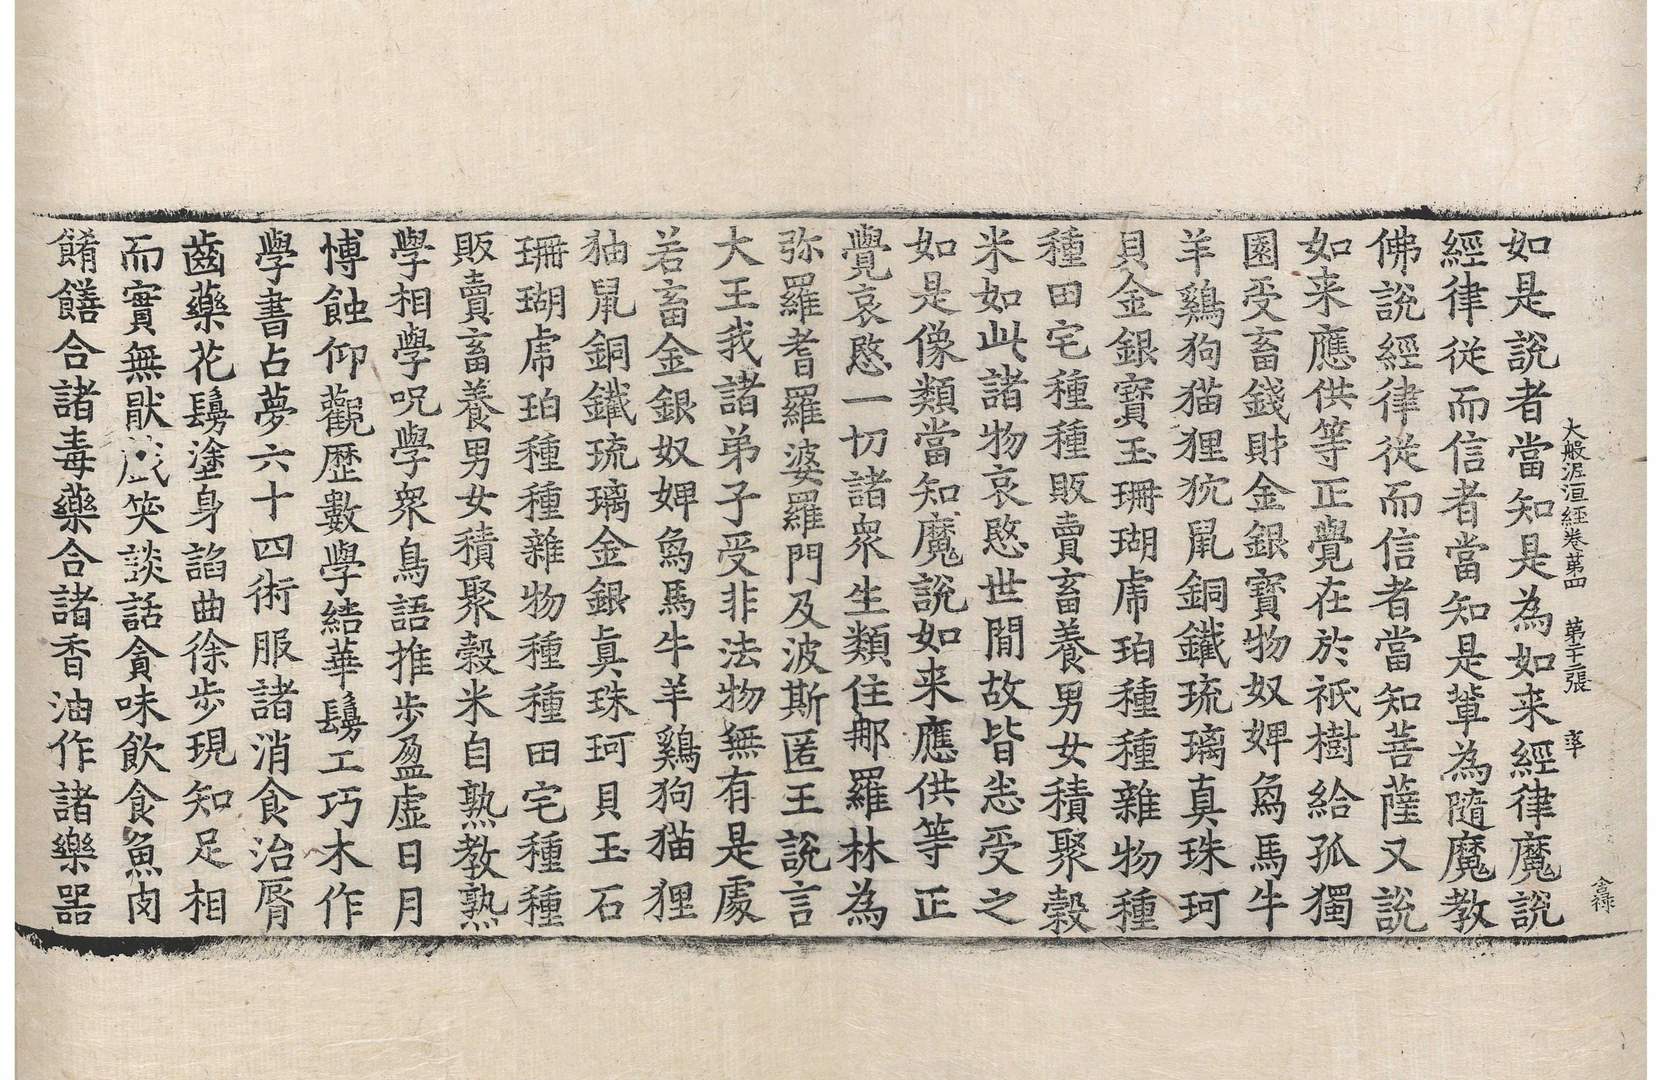 大般泥洹経卷苐四　苐十二張　率
如是說者當知是為如来經律魔說
經律従而信者當知是軰為隨魔教
佛說經律従而信者當知菩薩又說
如来應供等正覺在於祇樹給孤獨
園受畜錢財金銀寶物奴婢象馬牛
羊鷄狗猫狸狖鼠銅鐵琉璃真珠珂
貝金銀寶玉珊瑚虎珀種種雜物種
種田宅種種販賣畜養男女積聚穀
米如此諸物哀愍世間故皆悉受之
如是像類當知魔說如来應供等正
覺哀愍一切諸衆生類住那羅林為
弥羅耆羅婆羅門及波斯匿王說言
大王我諸弟子受非法物無有是處
若畜金銀奴婢象馬牛羊鷄狗猫狸
狖鼠銅鐵琉璃金銀真珠珂貝玉石
珊瑚虎珀種種雜物種種田宅種種
販賣畜養男女積聚穀米自熟教熟
學相學呪學衆鳥語推步盈虛日月
愽蝕仰觀歷數學結華鬘工巧木作
學書占夢六十四術服諸消食治脣
齒藥花鬘塗身諂曲徐步現知足相
而實無猒戲笑談話貪味飲食魚肉
餚饍合諸毒藥合諸香油作諸樂器